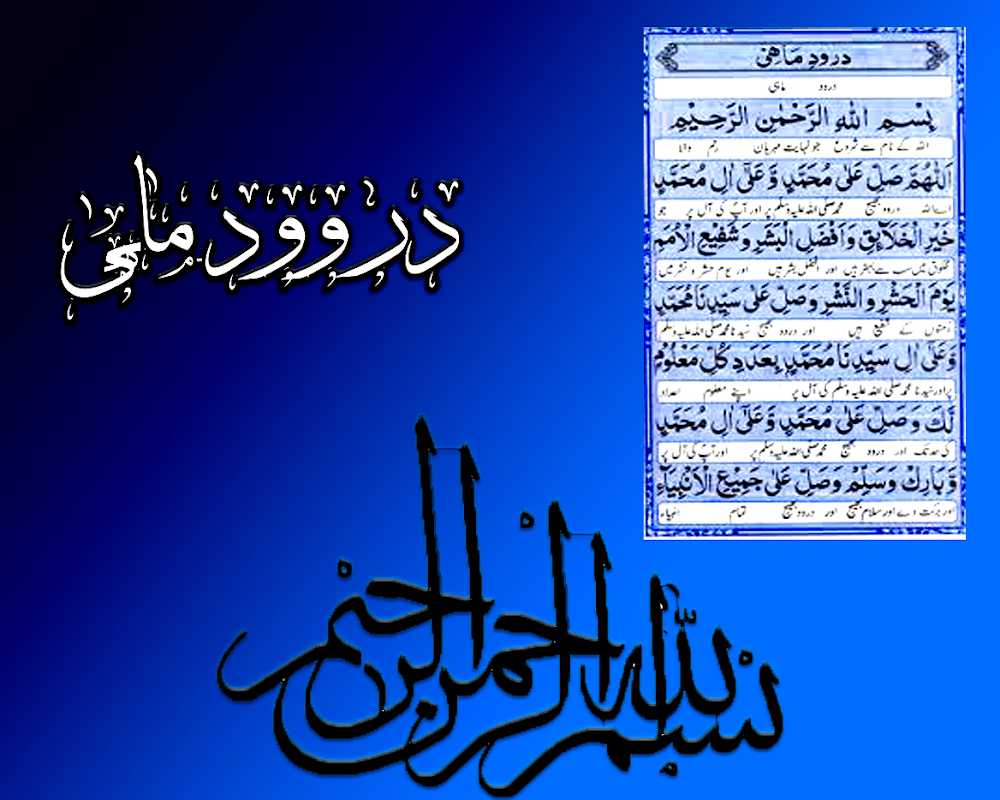 دروود ماہی
درودِ مَاهِیْ
درود ماہی
بِسْمِ اللهِ الرَّحْمٰنِ الرَّحِيْمِ
اللہ کے نام سے شروع جو نہایت مہربان رحم والا
اَللّٰهُمَّ صَلِّ عَلٰى مُحَمَّدٍ وَّعَلٰٓى اٰلِ مُحَمَّدٍ
اے اللہ درود بھیج محمد صلی اللہ علیہ وسلم پر اور آپؐ کی آل پر جو
خَيْرِ الْخَلَآئِقِ وَاَفْضَلِ الْبَشَرِ وَشَفِيْعِ الْاُمَمِ
مخلوق میں سب سے بہتر ہیں اور افضل بشر ہیں اور یوم حشر و نشر میں
يَوْمَ الْحَشْرِ وَالنَّشْرِ وَصَلِّ عَلٰى سَيِّدِنَا مُحَمَّدٍ
امتوں کے شفیع ہیں اور درود بھیج سیدنا محمد صلی اللہ علیہ وسلم
وَّعَلٰٓى اٰلِ سَيِّدِنَا مُحَمَّدٍ بِعَدَدِ كُلِّ مَعْلُوْمٍ
پر اور سیدنا محمد صلی اللہ علیہ وسلم کی آل پر اپنے معلوم اعداد
لَّكَ وَصَلِّ عَلٰى مُحَمَّدٍ وَّعَلٰٓى اٰلِ مُحَمَّدٍ
کی حد تک اور درود بھیج محمد صلی اللہ علیہ وسلم پر اور آپؐ کی آل پر
وَّبَارِكْ وَسَلِّمْ وَصَلِّ عَلٰى جَمِيْعِ الْاَنْبِيَآءِ
اور برکت دے اور سلام بھیج اور درود بھیج تمام انبیاء
بسم الله الرحمن الرحيم